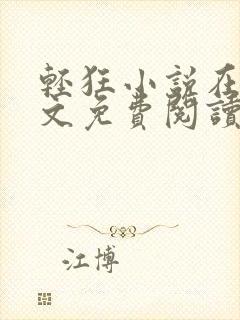 輕狂小說在
文免費閱讀
江博